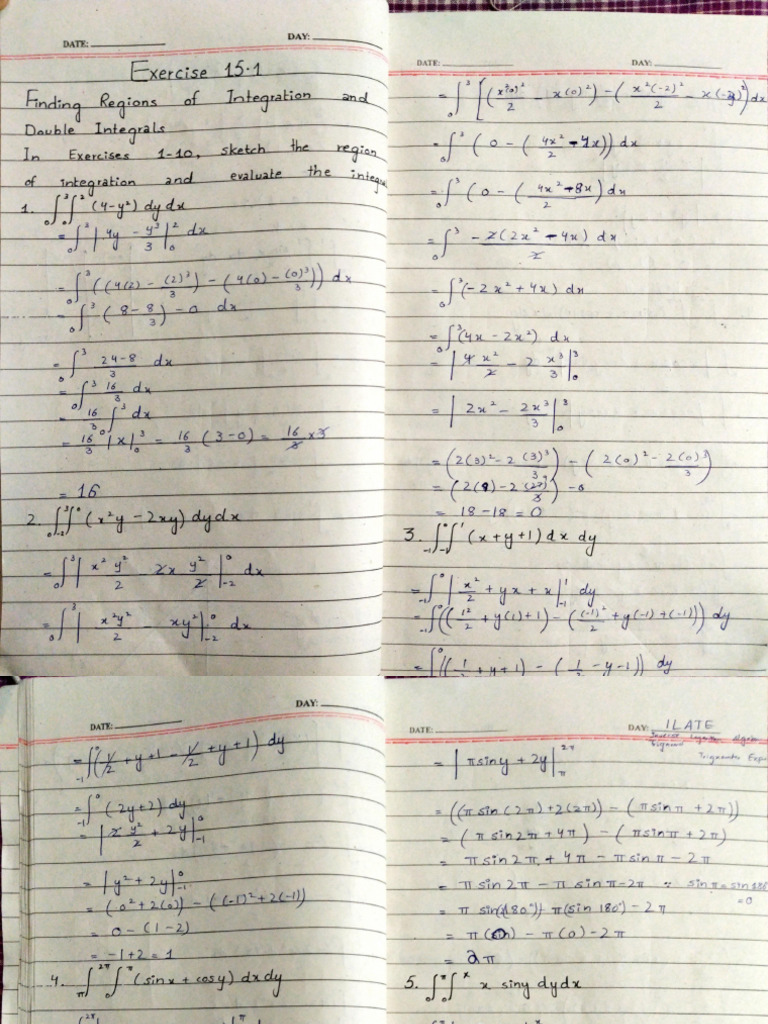 DATE: DAY:
Exercise 15.1
Finding Regions of Integration and
Double Integrals
In Exercises 1-10, sketch the region
of integration and evaluate the integra
1. ₀∫³ ₀∫² (4-y²) dy dx
= ₀∫² |4y - y³/3|₀² dx
= ₀∫³ ((4(2) - (2)³/3) - (4(0) - (0)³/3)) dx
= ₀∫³ (8 - 8/3) - 0 dx
= ₀∫³ 24-8/3 dx
= ₀∫³ 16/3 dx
= 16/3 ₀∫³ dx
= 16/3 |x|₀³ = 16/3 (3-0) = 16/3 × 3
= 16
2. ₀∫³ ₋₂∫⁰ (x²y - 2xy) dy dx
= ₀∫³ | x² y²/2 - 2x y²/2 |₋₂⁰ dx
= ₀∫³ | x²y²/2 - xy² |₋₂⁰ dx
DATE: DAY:
= ₀∫³ [(x²(0)²/2 - x(0)²) - (x²(-2)²/2 - x(-2)²)] dx
= ₀∫³ (0 - (4x²/2 - 4x)) dx
= ₀∫³ (0 - (4x² - 8x)/2) dx
= ₀∫³ -2(2x² - 4x)/2 dx
= ₀∫³ (-2x² + 4x) dx
= ₀∫³ (4x - 2x²) dx
= | 4 x²/2 - 2 x³/3 |₀³
= | 2x² - 2x³/3 |₀³
= (2(3)² - 2(3)³/3) - (2(0)² - 2(0)³/3)
= (2(9) - 2(27)/3) - 0
= 18 - 18 = 0
3. ₋₁∫⁰ ₋₁∫¹ (x+y+1) dx dy
= ₋₁∫⁰ | x²/2 + yx + x |₋₁¹ dy
= ₋₁∫⁰ ((1²/2 + y(1) + 1) - ((-1)²/2 + y(-1) + (-1))) dy
= ∫⁰ ((1/2 + y + 1) - (1/2 - y - 1)) dy
DATE: DAY:
= ₋₁∫⁰ (1/2 + y + 1 - 1/2 + y + 1) dy
= ₋₁∫⁰ (2y+2) dy
= | 2 y²/2 + 2y |₋₁⁰
= | y² + 2y |₋₁⁰
= (0² + 2(0) - ((-1)² + 2(-1))
= 0 - (1-2)
= -1+2 = 1
4. π∫²π ₀∫π (sinx + cosy) dx dy
DATE: DAY: ILATE
= | πsiny + 2y |π²π
= ((πsin(2π) + 2(2π)) - (πsinπ + 2π))
= (πsin2π + 4π) - (πsinπ + 2π)
= πsin2π + 4π - πsinπ - 2π
= πsin2π - πsinπ - 2π ∵ sinπ = sin180 = 0
= π(0) - π(0) - 2π
= 2π
5. ₀∫π ₀∫ˣ x siny dy dx